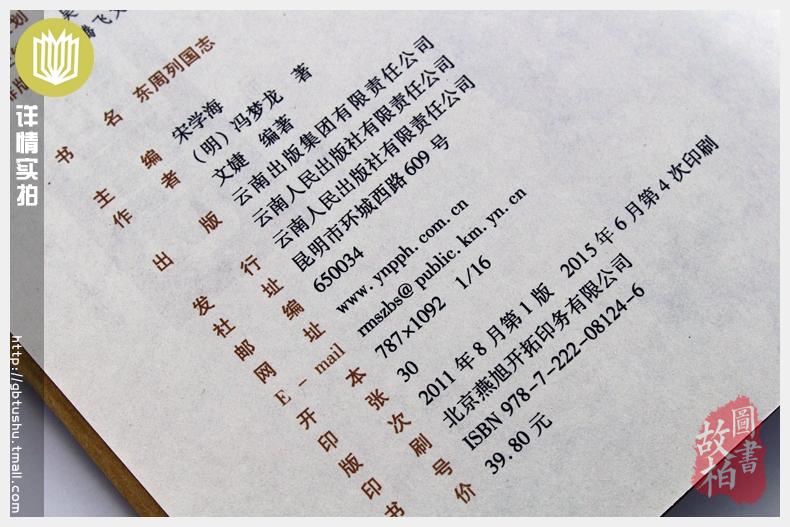 详情实拍
http://gbtushu.tmall.com
书 名 东周列国志
主 编 宋学海
作 者 (明) 冯梦龙 著
文婕 编著
出 版 云南出版集团有限责任公司
云南人民出版社有限责任公司
发 行 云南人民出版社有限责任公司
社 址 昆明市环城西路 609 号
邮 编 650034
网 址 www. ynpph. com. cn
E - mail rmszbs@ public. km. yn. cn
开 本 787×1092 1/16
印 张 30
版 次 2011 年 8 月第 1 版 2015 年 6 月第 4 次印刷
印 刷 北京燕旭开拓印务有限公司
书 号 ISBN 978-7-222-08124-6
价 39. 80 元
故柏
圖書